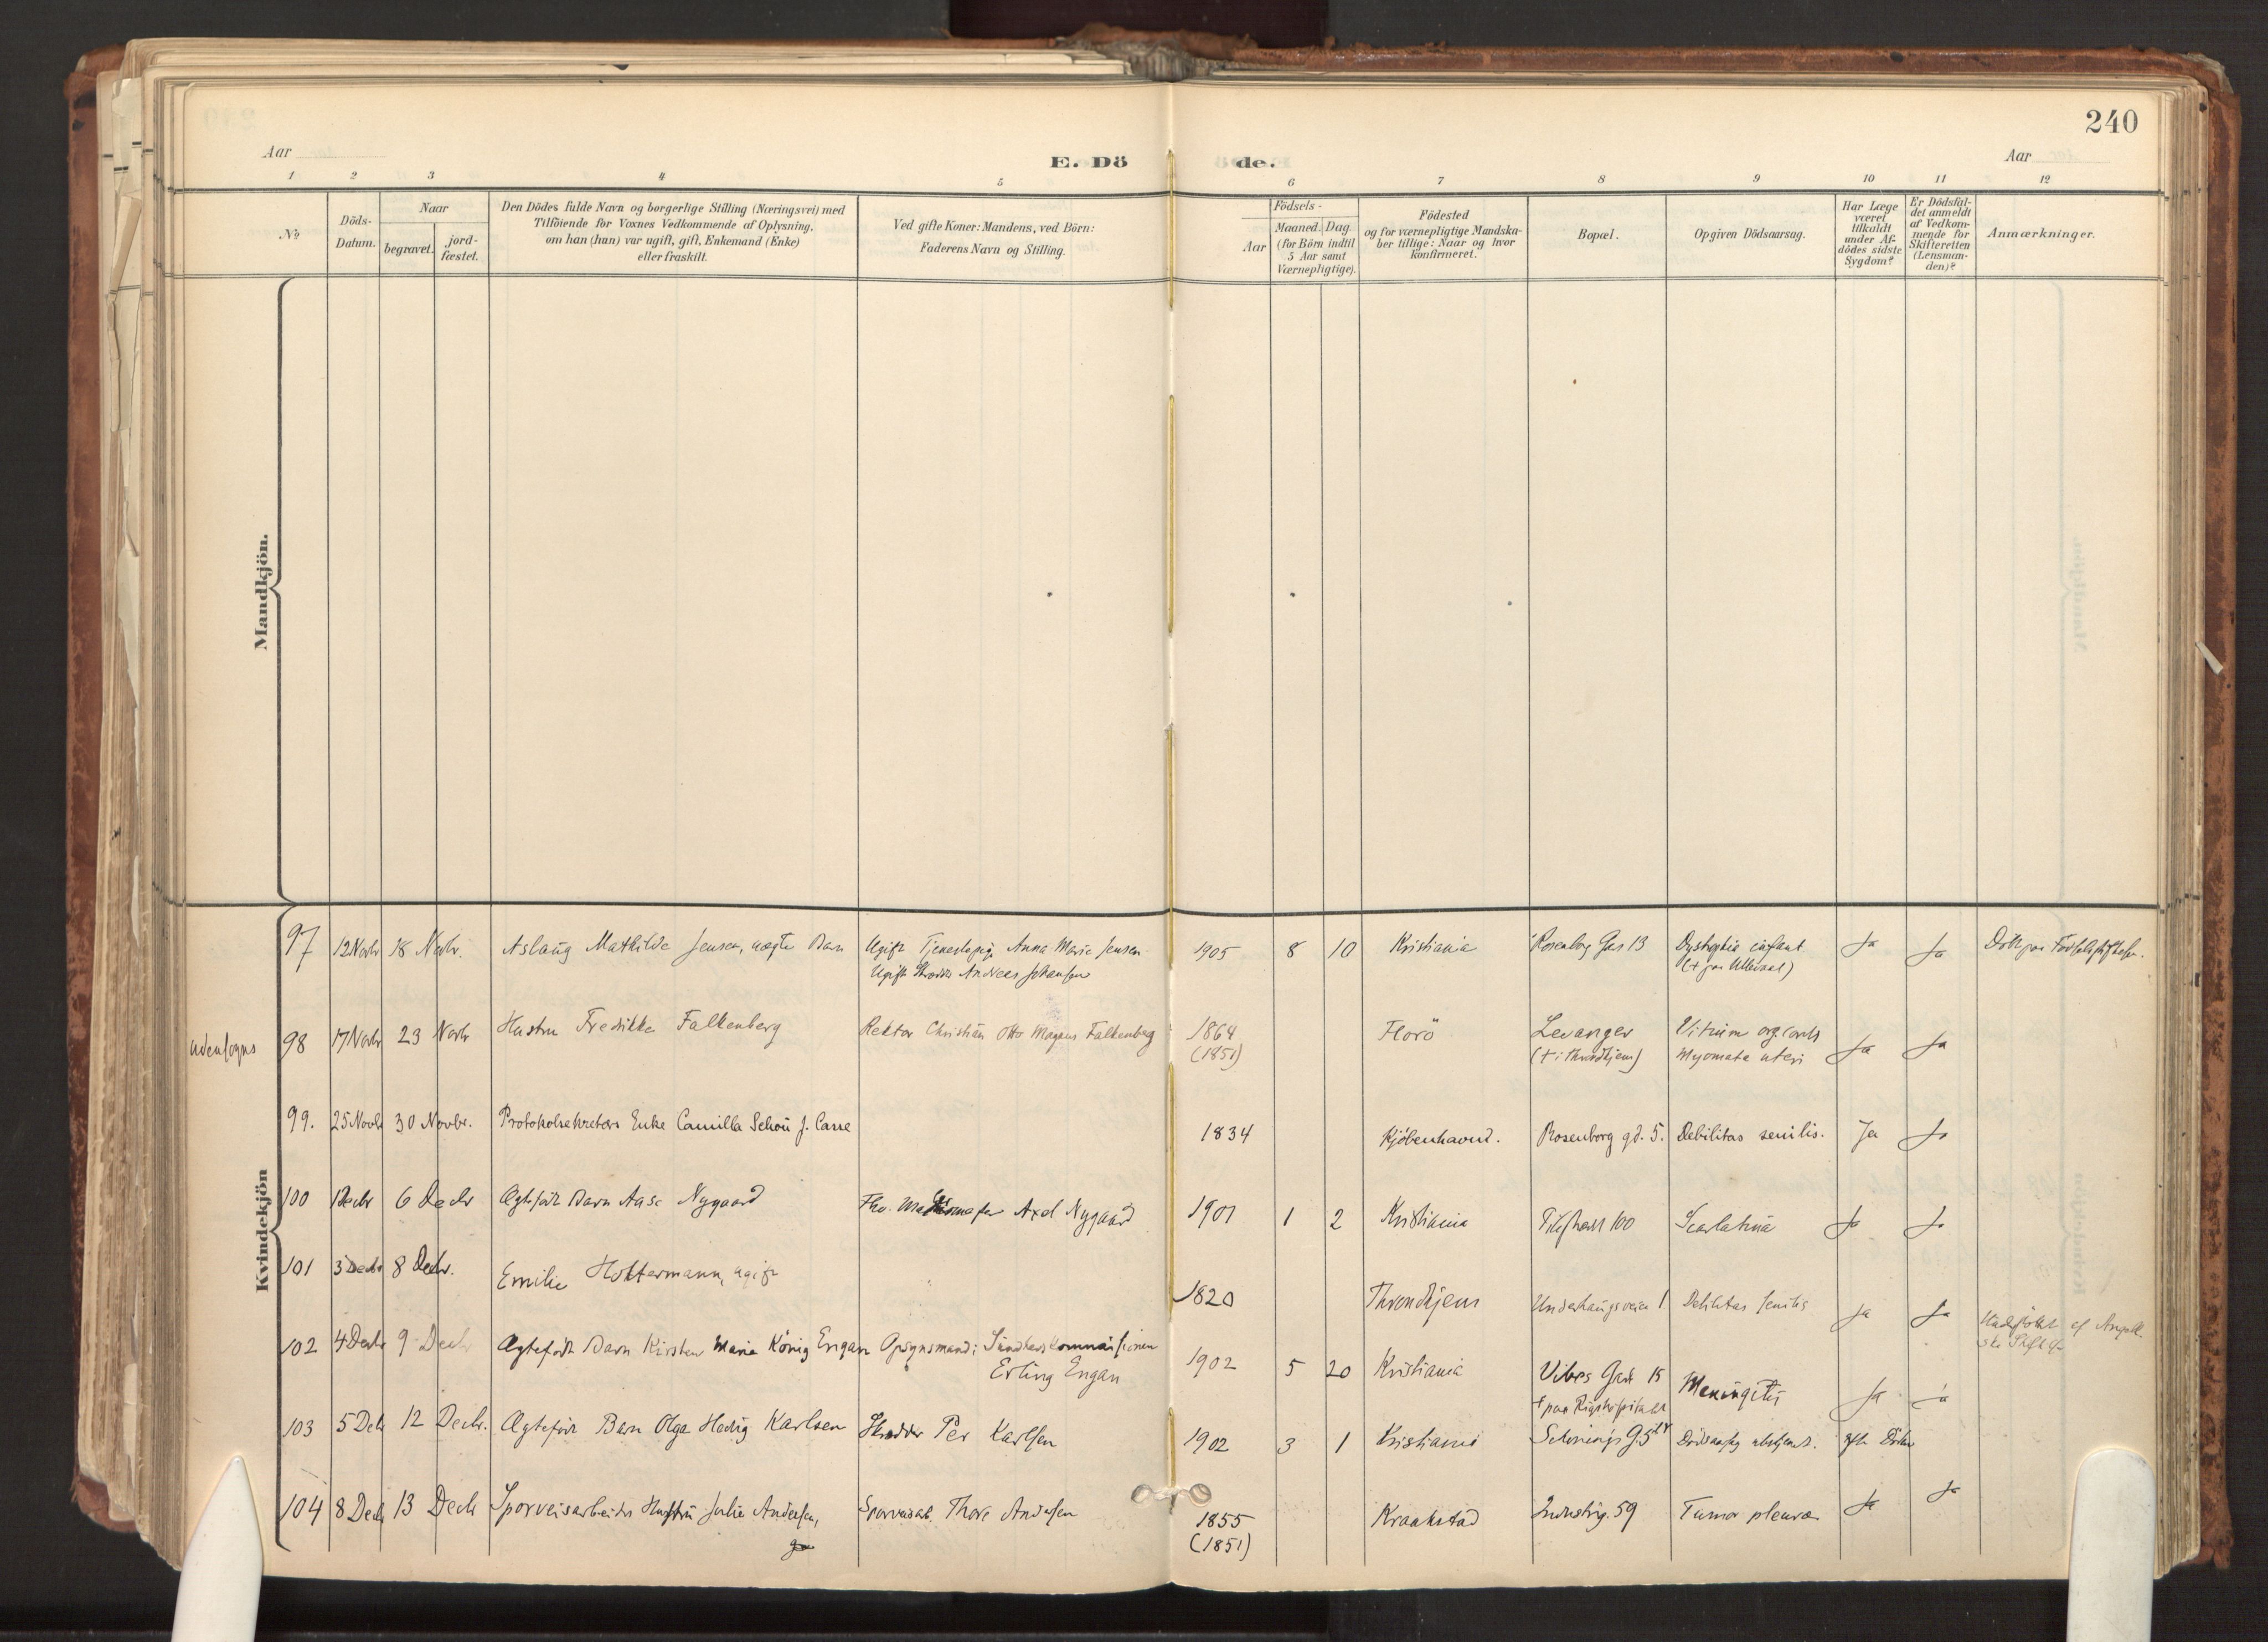 240
Aar
E. Dö de.
Aar
1 2 3 4 5 6 7 8 9 10 11 12
No
Döds-
Datum.
Naar
begravet.
jord-
fæstet.
Den Dödes fulde Navn og borgerlige Stilling (Næringsvei) med
Tilföiende for Voxnes Vedkommende af Oplysning,
om han (hun) var ugift, gift, Enkemand (Enke)
eller fraskilt.
Ved gifte Koner: Mandens, ved Börn:
Faderens Navn og Stilling.
Födsels-
Aar
Maaned. Dag
(for Börn indtil
5 Aar samt
Værnepligtige).
Födested
og for værnepligtige Mandska-
ber tillige: Naar og hvor
konfirmeret.
Bopæl.
Opgiven Dödsaarsag.
Har Læge
været
tilkaldt
under Af-
dödes sidste
Sygdom?
Er Dödsfal-
det anmeldt
af Vedkom-
mende for
Skifteretten
(Lensman-
den)?
Anmærkninger.
Mandkjön.
Kvindekjön
97 12 Novbr 18 Novbr. Aslaug Mathilde Jensen, uægte Barn Ugift Tjenestepige Anna Marie Jensen 1905 8 10 Kristiania Rosenborg Gas 13 Ja Ja
Ugift Skrædder Andreas Johansen (+ paa Ullevaal)
udensogns 98 17 Novbr 23 Novbr Hustru Fredrikke Falkenberg Rektor Christian Otto Magnus Falkenberg 1864 Florö Levanger Vitium org. cordis Ja Ja
(1851) (+ i Throndhjem) Myomata uteri
99. 25 Novbr 30 Novbr. Protokolsekretærs Enke Camilla Schou f. 1834 Kjöbenhavnd. Rosenborg gd. 5. Debilitas senilis. Ja Ja
100 1 Decbr 6 Decbr Ægtefødt Barn Aase Nygaard Fhv. Axel Nygaard 1901 1 2 Kristiania 100 Scarlatina Ja Ja
101 3 Decbr 8 Decbr. Emilie Holtermann, ugift 1820 Throndhjem Underhaugsveien 1 Debilitas senilis Ja Ja
102 4 Decbr 9 Decbr Ægtefødt Barn Kirsten Marie König Engan Opsynsmand i Sundhedskommissionen 1902 5 20 Kristiania Vibes Gade 15 Meningitis Ja Ja
Erling Engan + paa Rigshospitalet
103 5 Decbr 12 Decbr. Ægtefødt Barn Olga Hedvig Karlsen Skrædder Per Karlsen 1902 3 1 Kristiania Schönings G. Dödsaarsag ubekjendt.
104 8 Decbr 13 Decbr Sporveisarbeider Hustru Julie Andersen, Sporveisarb. Thore Andersen 1855 Kraakstad Industrig. 59 Tumor pleuræ Ja Ja
(1851)